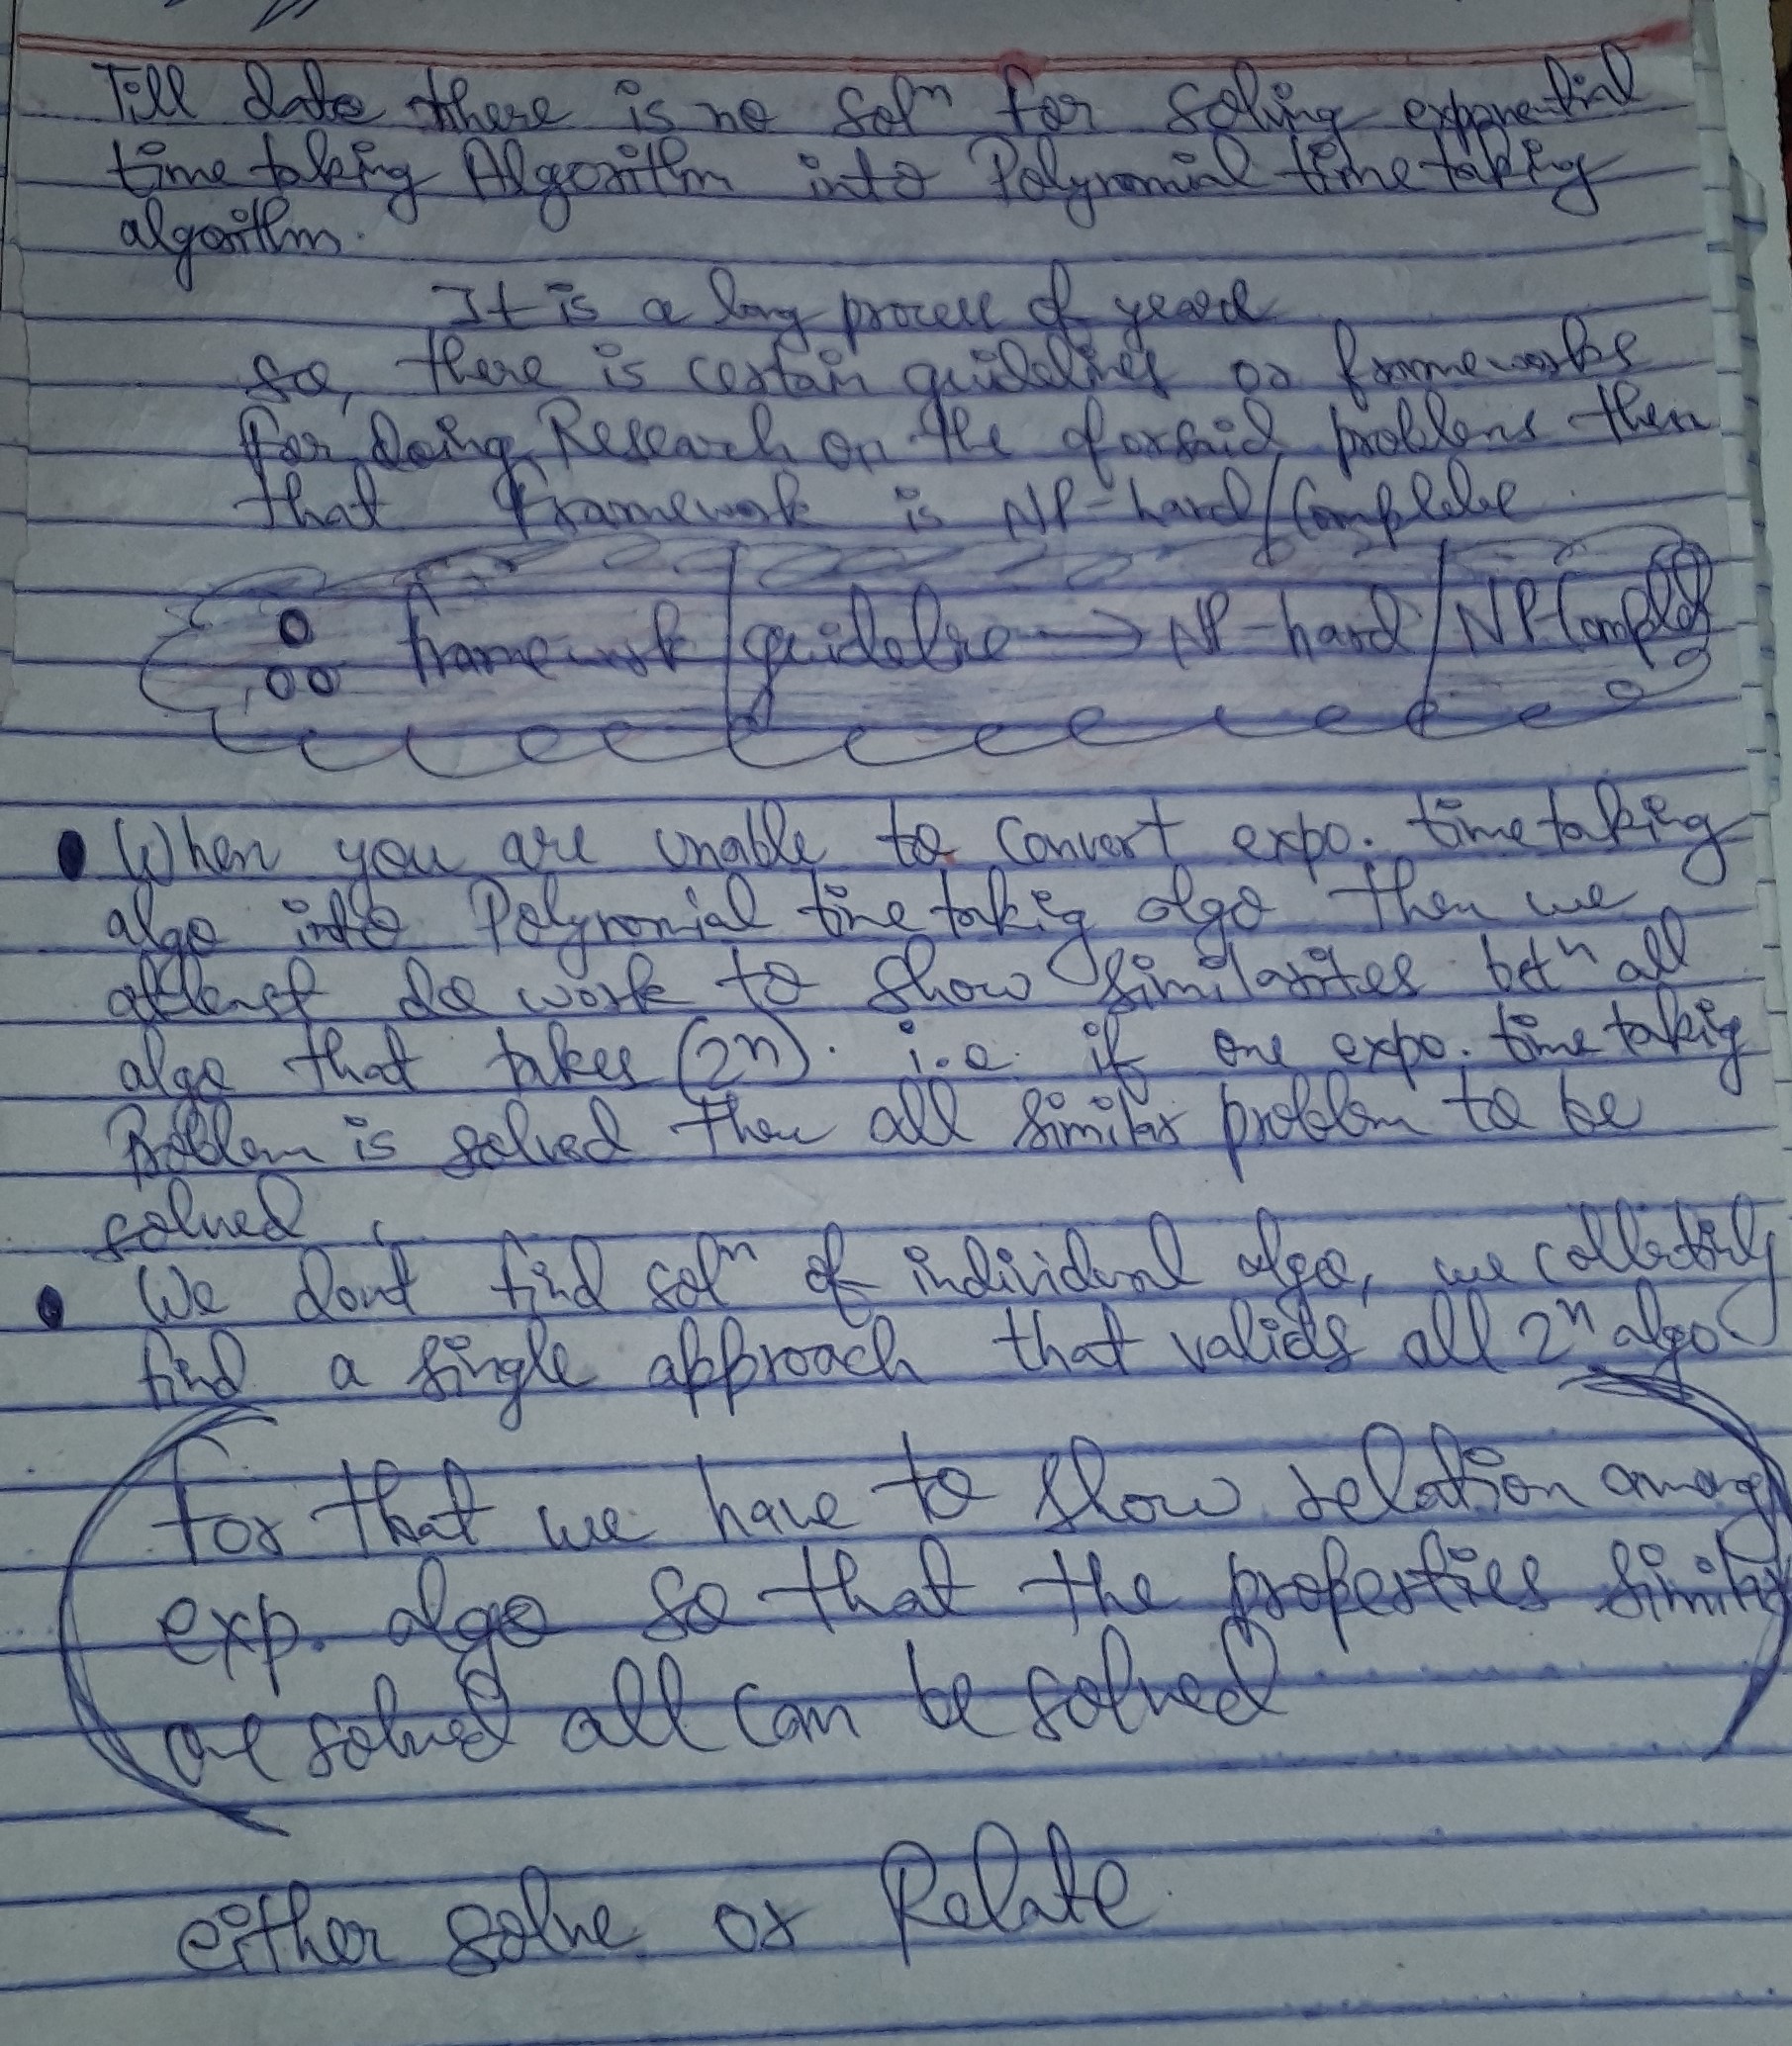 Till date there is no solⁿ for solving exponential
time taking Algorithm into Polynomial time taking
algorithm.
It is a long process of years
so, there is certain guidelines or frameworks
for doing Research on the aforsaid problems then
that framework is NP-hard/Complete
∴ framework/guideline → NP-hard/NP-Complete
• When you are unable to convert expo. time taking
algo into Polynomial time taking algo then we
atleast do work to show similarites betⁿ all
algo that takes (2ⁿ). i.e. if one expo. time taking
Problem is solved then all similar problem to be
solved.
• We dont find solⁿ of individual algo, we collectively
find a single approach that valids all 2ⁿ algo
For that we have to show relation among
exp. algo so that the properties similar
one solved all can be solved
either solve or Relate